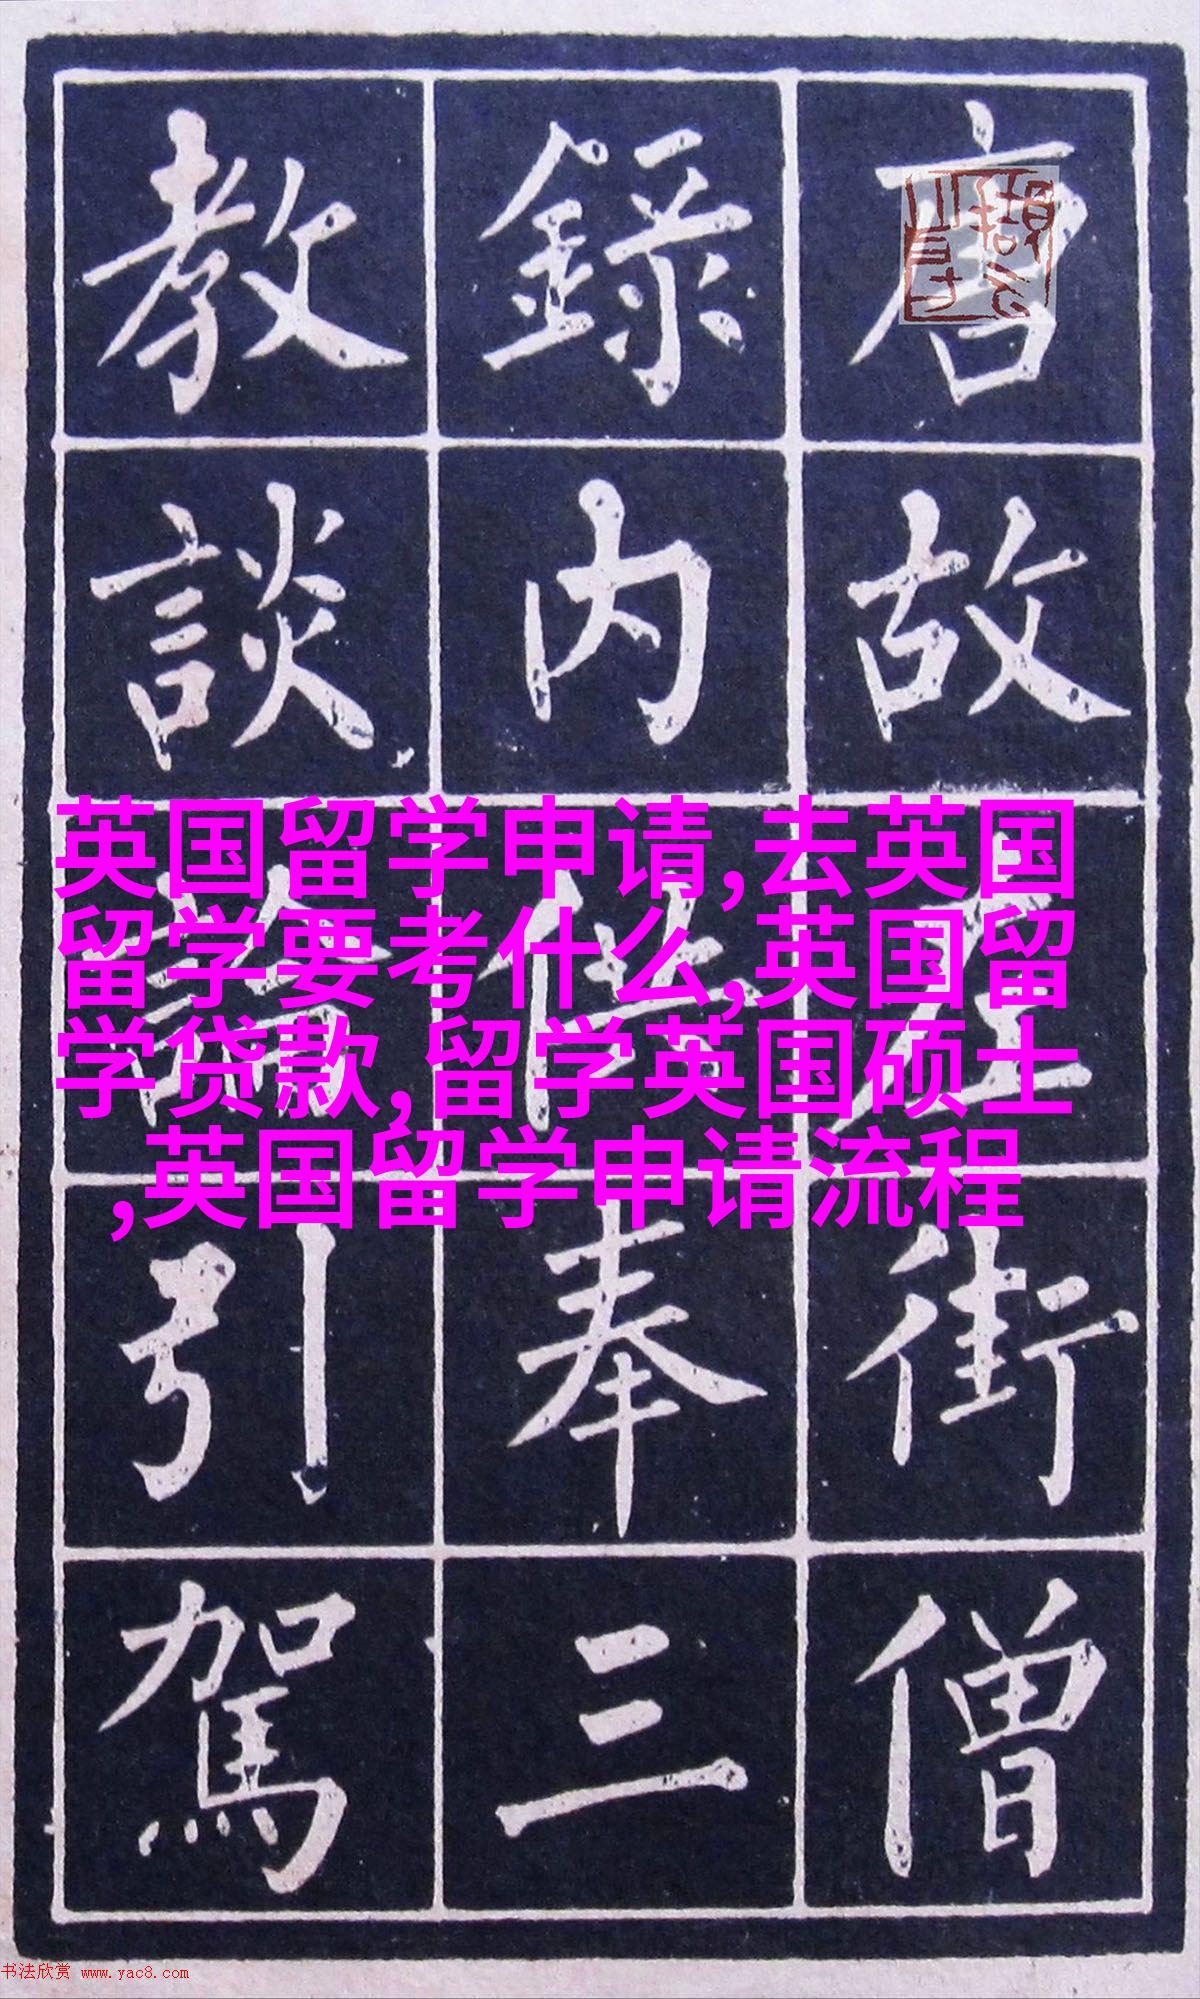 唐故左街僧
錄内供奉三
教談論引駕
英国留学申请,去英国
留学要考什么,英国留
学贷款,留学英国硕士
,英国留学申请流程
书法欣赏 www.yac8.com